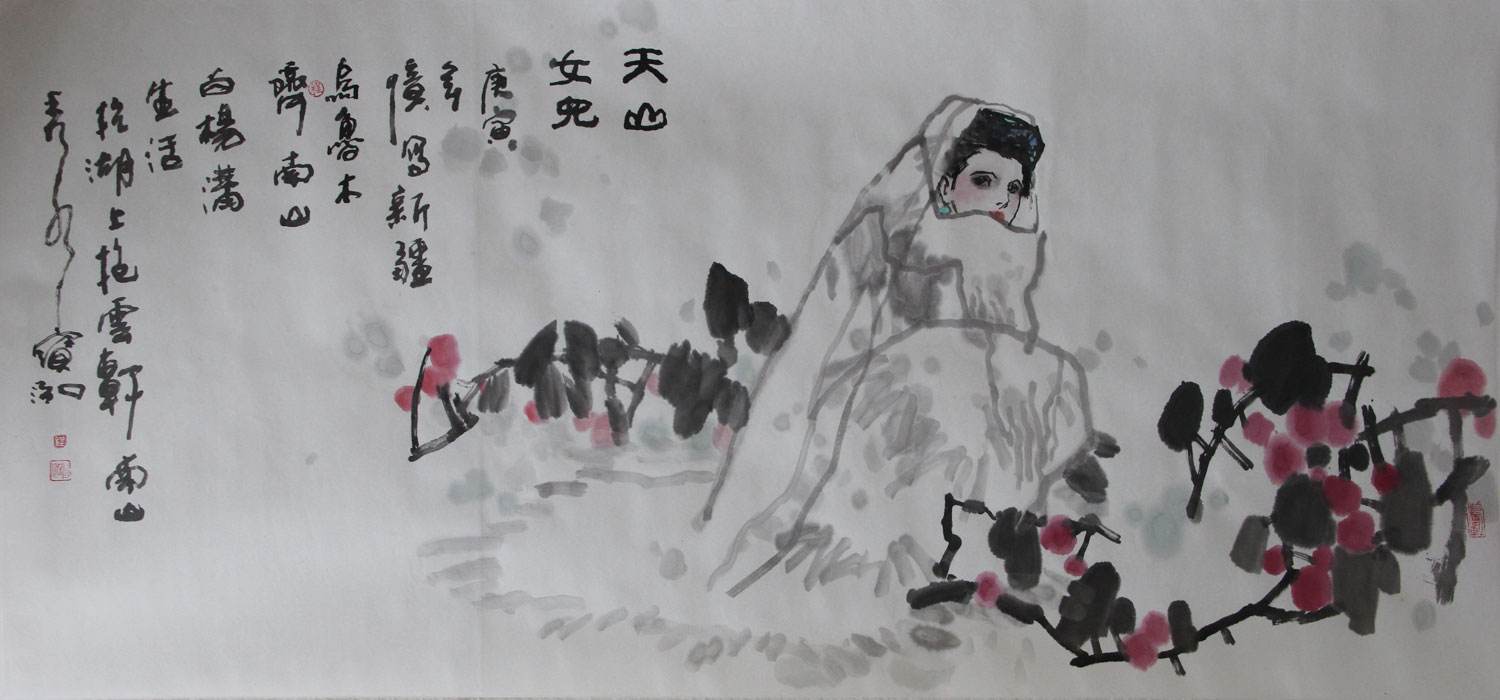 天山
女兒
庚寅
冬
憶寫新疆
烏魯木
齊南山
白楊溝
生活
於湖上抱雲軒南山
寶